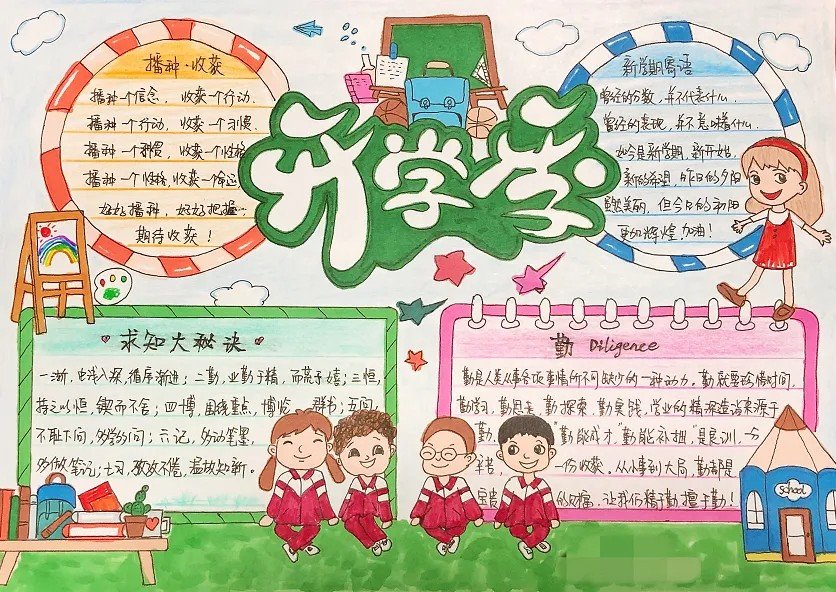 播种·收获
播种一个信念，收获一个行动.
播种一个行动，收获一个习惯.
播种一个习惯，收获一个性格
播种一个性格，收获一个命运
好好播种，好好把握
期待收获！
开学季
新学期寄语
曾经的分数，并不代表什么.
曾经的表现，并不意味着什么.
如今是新学期，新开始.
新的希望，昨日的夕阳
虽然美丽，但今日的初阳
更加辉煌，加油！
求知大秘诀
一渐，由浅入深，循序渐进；二勤，业勤于精，而荒于嬉；三恒，
持之以恒，锲而不舍；四博，围绕重点，博览群书；五问，
不耻下问，多学多问；六记，多动笔墨，
多做笔记；七习，孜孜不倦，温故知新。
勤 Diligence
勤是人类从事各项事情所不可缺少的一种动力。勤就要珍惜时间，
勤学习，勤思考，勤探索，勤实践，学业的精深造诣来源于
勤，"勤能成才""勤能补拙"是良训，一分
一份收获。从小事到大局，勤都是
的财福，让我们精于勤擅于勤！
School